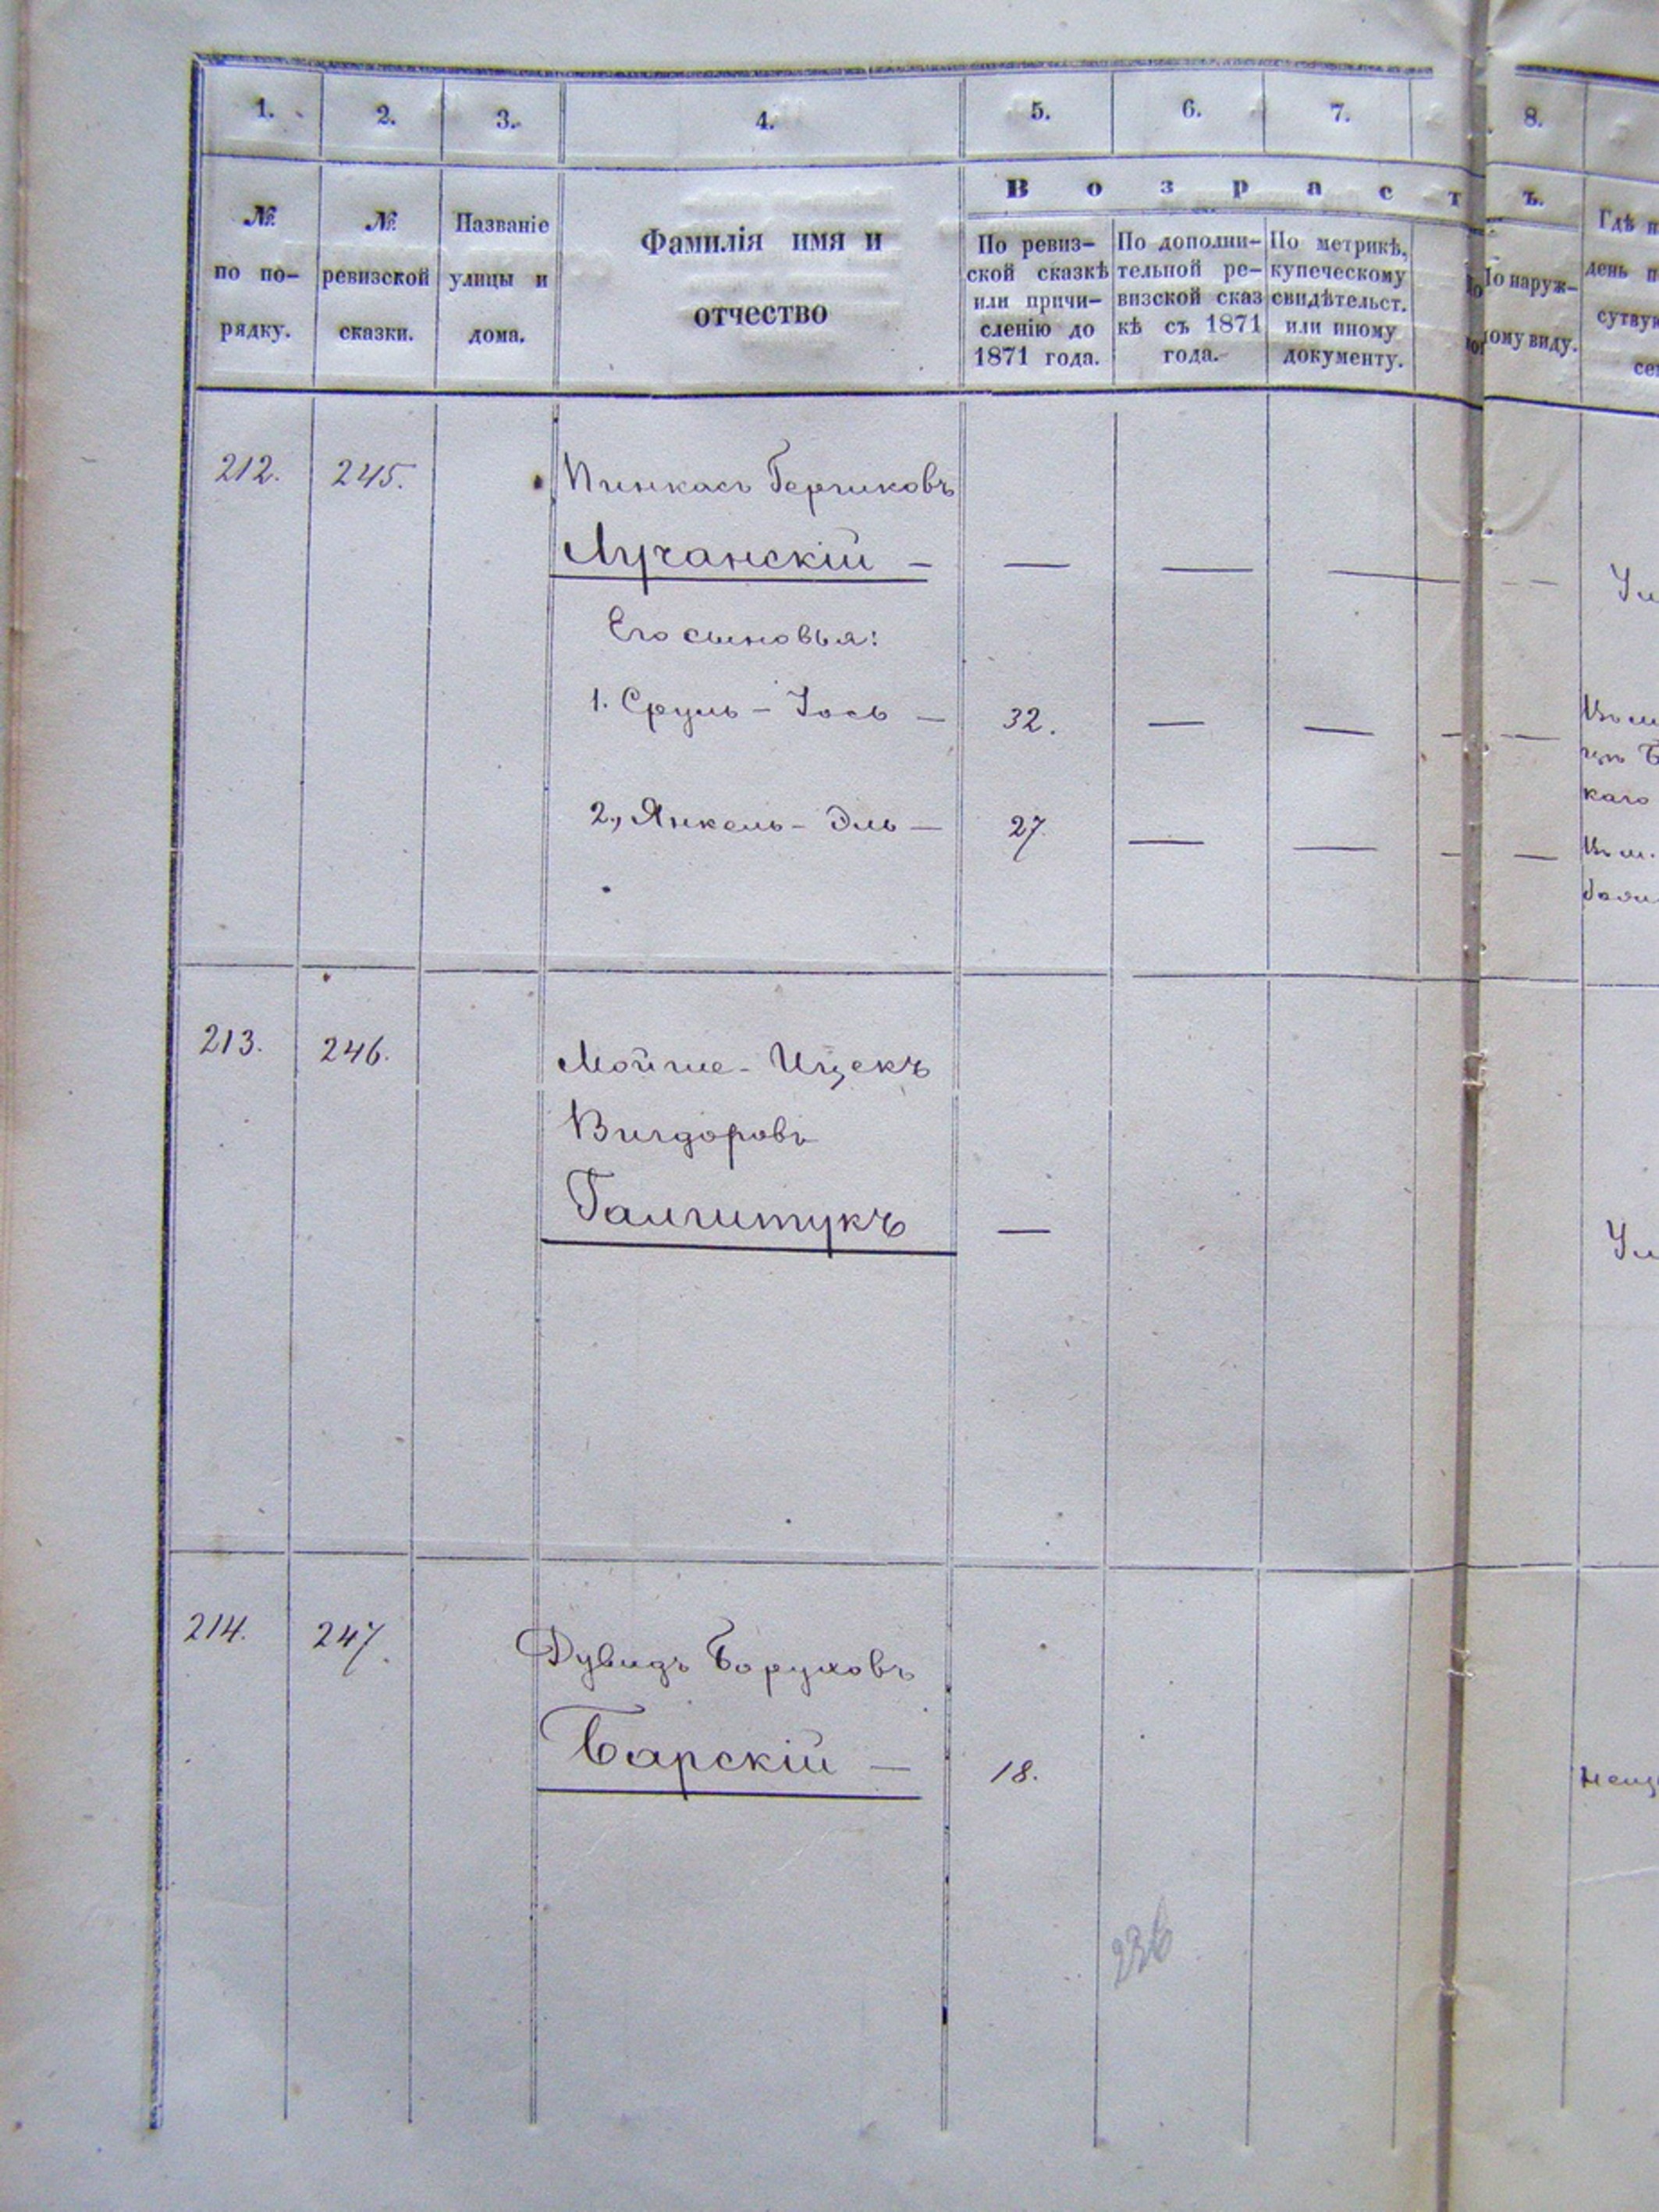 1. 2. 3. 4. 5. 6. 7. 8.
В о з р а с т ъ.
№ по по- рядку.
№ ревизской сказки.
Названіе улицы и дома.
Фамилія имя и
отчество
По ревиз-
ской сказкѣ
или причи-
сленію до
1871 года.
По дополни-
тельной ре-
визской сказ
кѣ съ 1871
года.
По метрикѣ,
купеческому
свидѣтельст.
или иному
документу.
По наруж-
ному виду.
Гдѣ
день
212. 245. Пинкасъ Гершковъ
Лучанскій —
Его сыновья:
1. Сруль - Іось — 32. — — —
2., Янкель - Эль — 27 — — —
213. 246. Мойше - Ицекъ
Вигдоровъ
Галштукъ —
214. 247. Дувидъ Боруховъ
Барскій — 18.
236